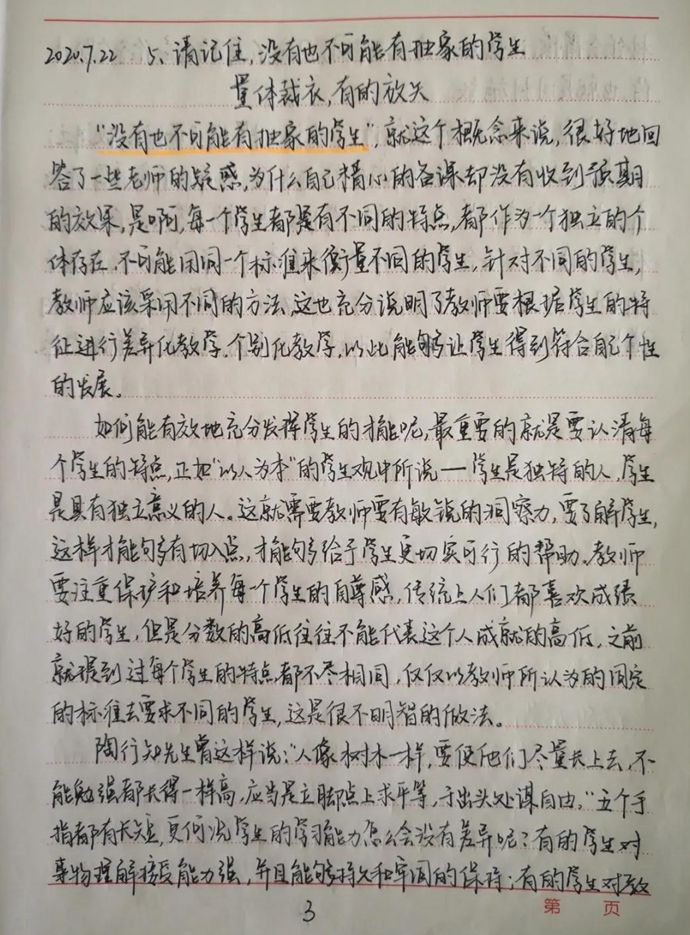 2020.7.22 5、请记住,没有也不可能有独家的学生
量体裁衣,有的放矢
“没有也不可能有独家的学生”,就这个概念来说,很好地回
答了一些老师的疑惑,为什么自己精心的备课却没有收到预期
的效果,是啊,每一个学生都是有不同的特点,都作为一个独立的个
体存在,不可能用同一个标准来衡量不同的学生,针对不同的学生,
教师应该采用不同的方法,这也充分说明了教师要根据学生的特
征进行差异化教学,个别化教学,以此能够让学生得到符合自己个性
的发展。
如何能有效地充分发挥学生的才能呢,最重要的就是要认清每
个学生的特点,正如“以人为本”的学生观中所说——学生是独特的人,学生
是具有独立意义的人。这就需要教师要有敏锐的洞察力,要了解学生,
这样才能够有切入点,才能够给予学生更切实可行的帮助。教师
要注重保护和培养每个学生的自尊感,传统上人们都喜欢成绩
好的学生,但是分数的高低往往不能代表这个人成就的高低,之前
就提到过每个学生的特点都不尽相同,仅仅以教师所认为的固定
的标准去要求不同的学生,这是很不明智的做法。
陶行知先生曾这样说:“人像树木一样,要使他们尽量长上去,不
能勉强都长得一样高,应当是立脚点上求平等,于出头处谋自由,”五个手
指都有长短,更何况学生的学习能力怎么会没有差异呢?有的学生对
事物理解接受能力强,并且能够持久和牢固的保持;有的学生对教
3
第 页